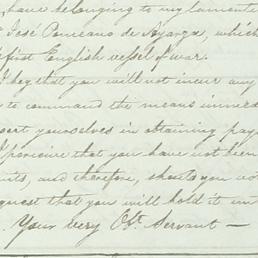 , have belonging to my lamente
José Ponciano de Ayarza, which
first English vessel of war.
I beg that you will not incur any
to command the means immed
sert yourselves in obtaining pay
I perceive that you have not been
and therefore, should you
quest that you will hold it in
Your very Obt. Servant —